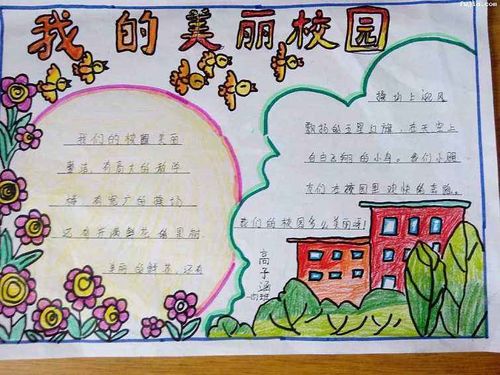 我的美丽校园
我们的校园美丽
整洁.有高大的教学
楼.有宽广的操场
还有开满鲜花的果树.
美丽的鲜花.还有
操场上迎风
飘扬的五星红旗.在天空上
自由飞翔的小鸟。我们小朋
友们在校园里欢快的
我们的校园多么美丽呀!
高子涵